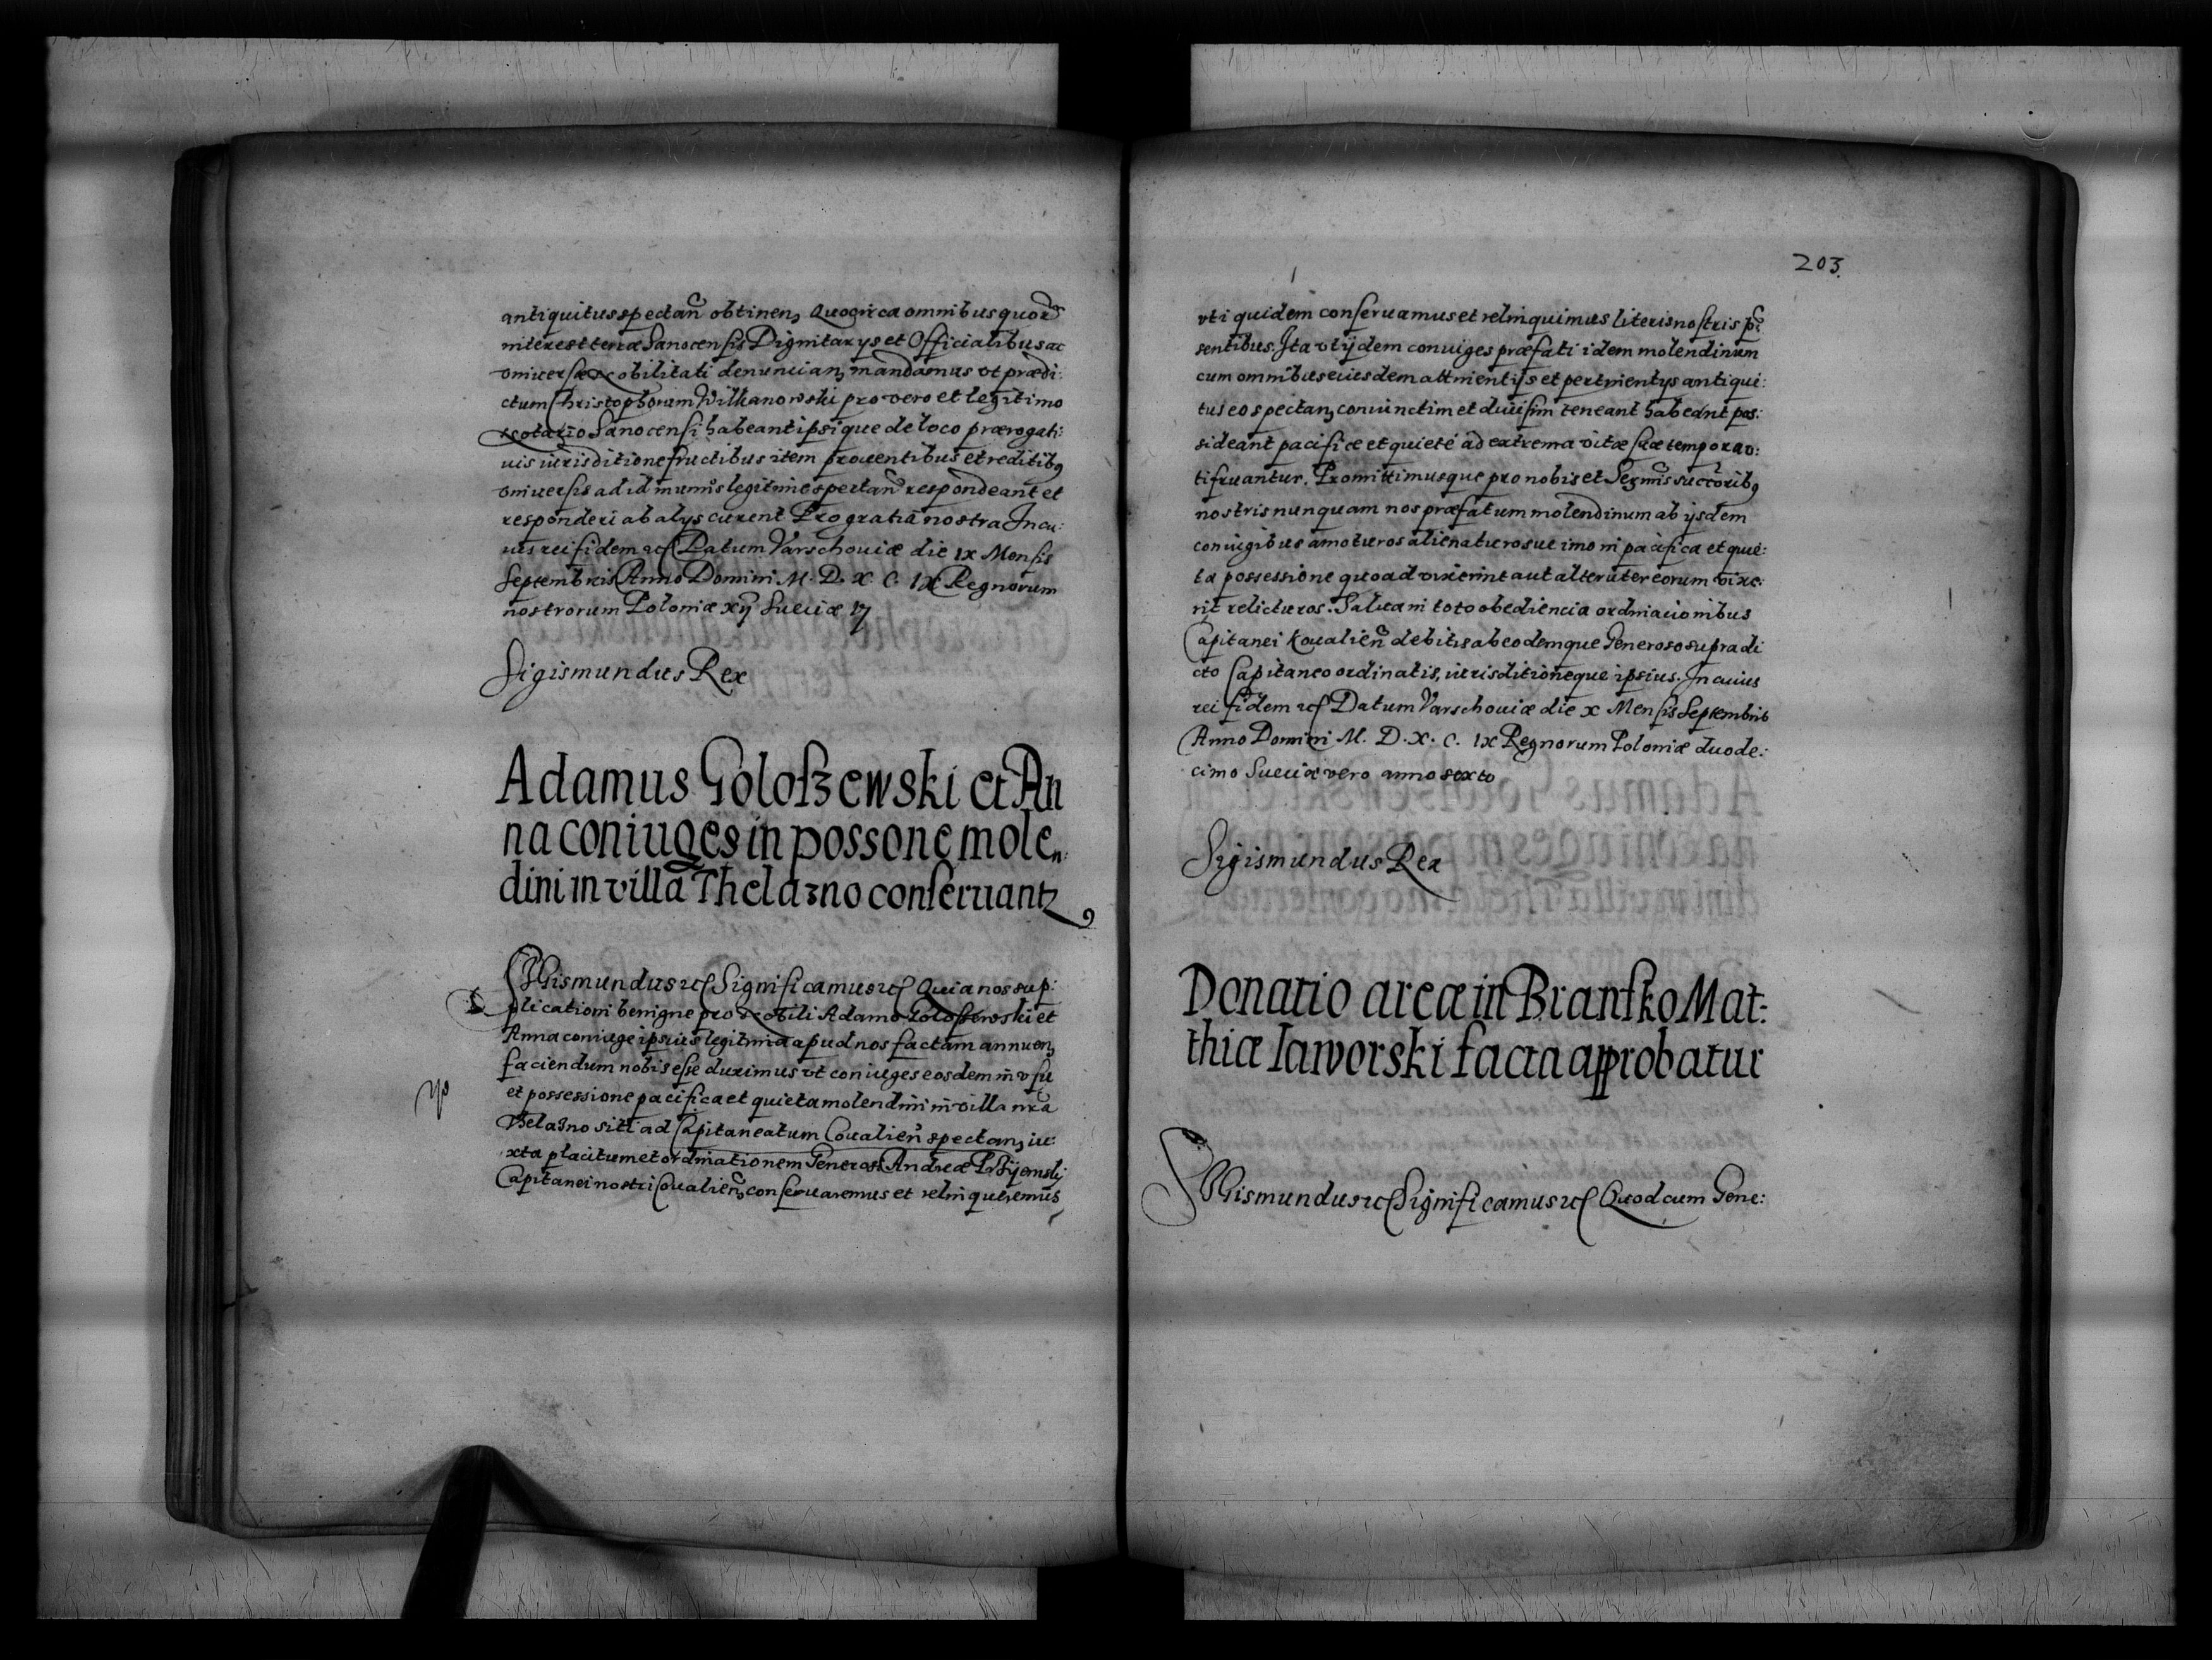 antiquitus spectan̄ obtinen, Quocirca omnibus quor̄
interest terræ Sanocensis Dignitarÿs et Officialibus ac
vniuersæ Nobilitati denuncian, mandamus vt prædi:
ctum Christophorum Wilkanowski pro vero et legitimo
Notario Sanocensi habeant ipsique de loco prærogati:
uis iurisditione fructibus item prouentibus et reditibq
vniuersis ad id munus legitime spectan̄ respondeant et
responderi ab alÿs curent Pro gratia nostra In cu:
ius rei fidem etc Datum Varschouiæ die ix Mensis
Septembris Anno Domini M. D. X. C. IX Regnorum
nostrorum Poloniæ xij Sueciæ
Sigismundus Rex
Adamus Goloſzewski et An
na coniuges in possone molen
dini in villa Thelazno conseruant
SIGismundus etc Significamus etc Quia nos sup:
plicationi benigne pro Nobili Adamo Goloſzewski et
Anna coniuge ipsius legitima apud nos factam annuen,
faciendum nobis esse duximus vt coniuges eosdem in vsu
et possessione pacifica et quieta molendini in villa nr̄a
Thelazno siti ad Capitaneatum Coualien̄ spectan, iu:
xta placitum et ordinationem Generosi Andreæ
Capitanei nostri Coualien̄, conseruaremus et relinqueremus
203.
vti quidem conseruamus et relinquimus literis nostris p̄:
sentibus. Ita vt ijdem coniuges præfati idem molendinum
cum omnibus eiusdem attinentijs et pertinentÿs antiqui:
tus eo spectan, coniunctim et diuisim teneant habeant pos:
sideant pacifice et quieté ad extrema vitæ suæ tempora v:
tifruantur. Promittimusque pro nobis et Ser̄mis succ̄oribq
nostris nunquam nos præfatum molendinum ab ÿsdem
coniugibus amoturos alienaturosue imo in pacifica et quie:
ta possessione quoad vixerint aut alteruter eorum vixe:
rit relicturos. Salua in toto obediencia ordinacionibus
Capitanei Koualien̄ debitis ab eodemque Generoso supradi
cto Capitaneo ordinatis, iurisditioneque ipsius. In cuius
rei fidem etc Datum Varschouiæ die x Mensis Septembris
Anno Domini M. D. X. C. IX Regnorum Poloniæ duode:
cimo Sueciæ vero anno sexto
Sigismundus Rex
Donatio areæ in Bransko Mat:
thiæ Iaworski facta approbatur
SIGismundus etc Significamus etc Quod cum Gene: